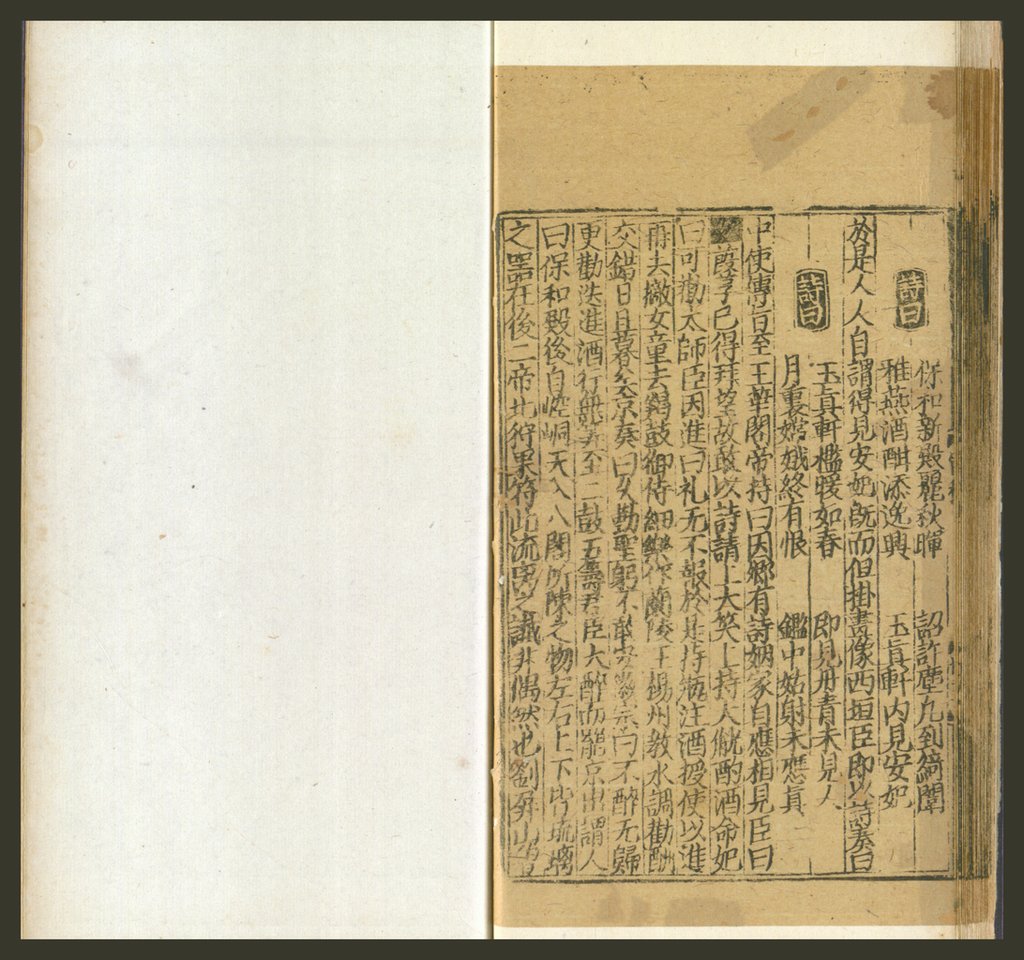 詩曰
保和新殿麗秋暉　詔許塵凡到綺闈
雅燕酒酣添逸興　玉真軒内見安妃
於是人人自謂得見安妃旣而但掛畫像西垣臣即以詩奏曰
詩曰
玉真軒檻暖如春　即見丹青未見人
月裏嫦娥終有恨　鑑中姑射未應真
中使傳旨至玉華閣帝持曰因卿有詩姻家自應相見臣曰
葭莩已得拜望故敢以詩請上大笑上持大觥酌酒命妃
曰可勸太師臣因進曰礼无不報於是持瓶注酒授使以進
再去撤女童去羯鼓御侍細樂作蘭陵王楊州教水調勸酬
交錯日且暮矣京奏曰久勤聖躬不敢安徽宗曰不醉无歸
更勸迭進酒行無筭至二鼓五籌君臣大醉而罷京出謂人
曰保和殿後自崆峒天入八閣所陳之物左右上下皆琉璃
之器在後二帝北狩果符此流離之讖非偶然也劉屏山